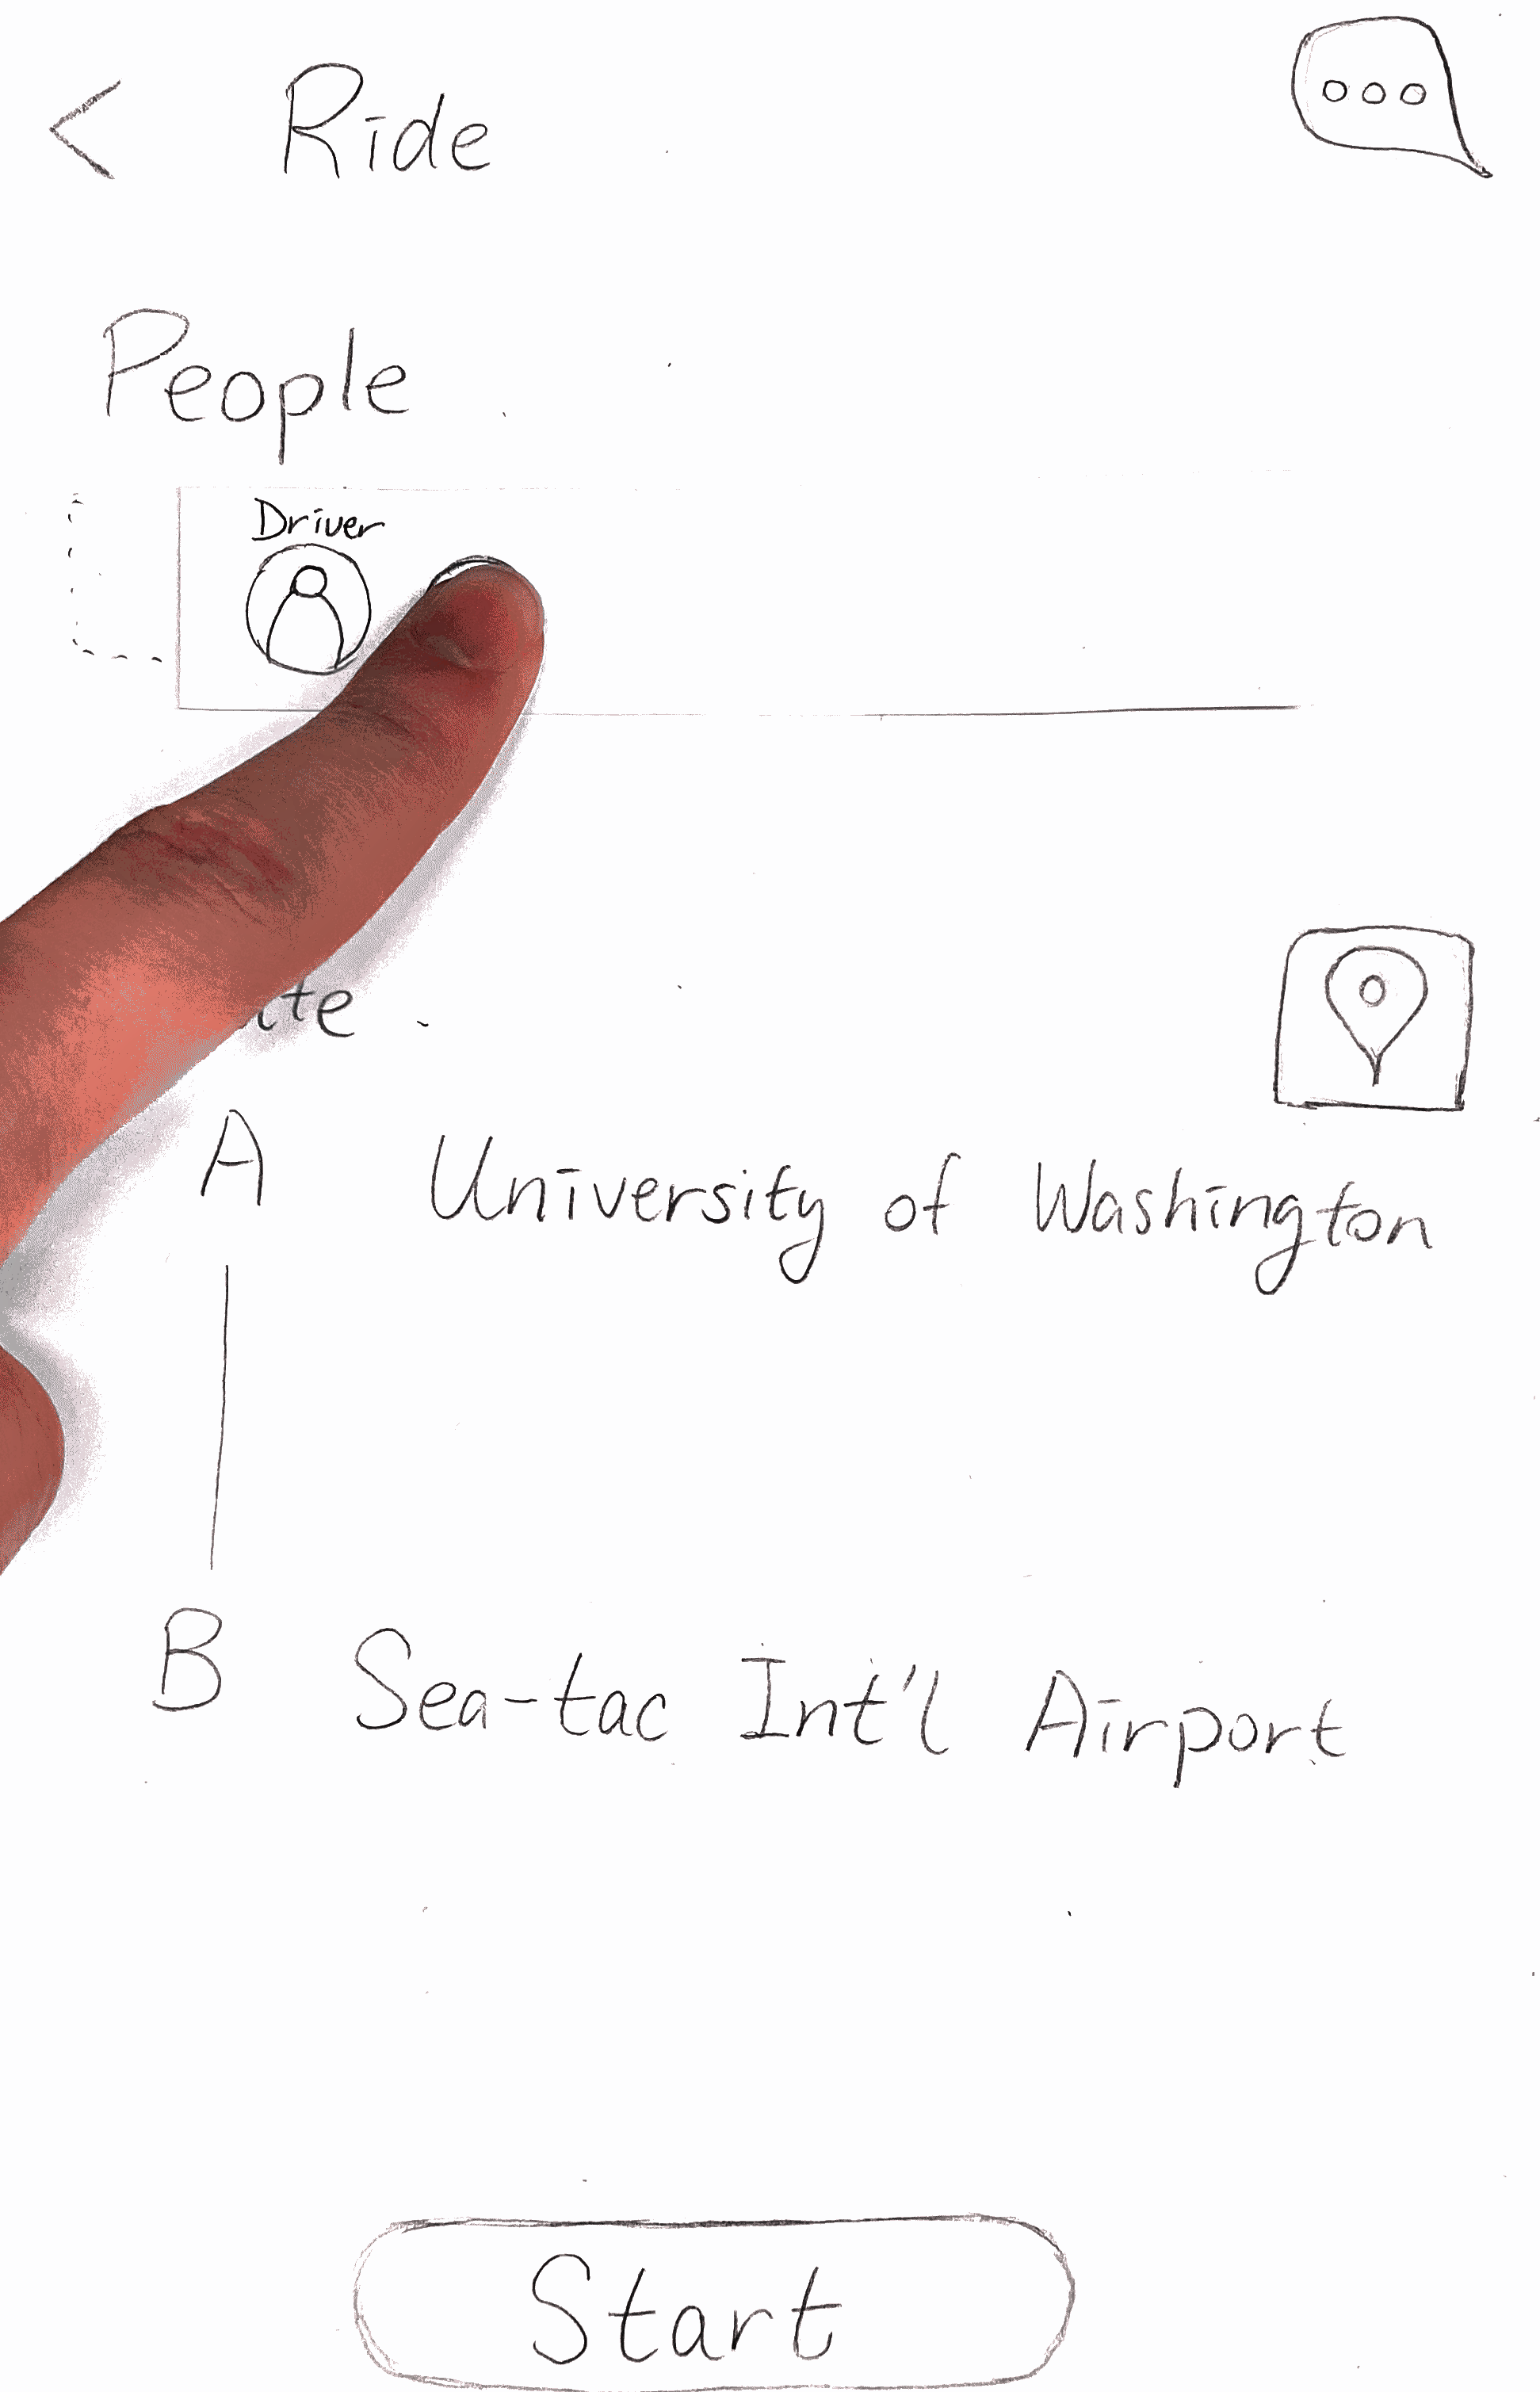 < Ride
People
Driver
A University of Washington
B Sea-tac Int'l Airport
Start